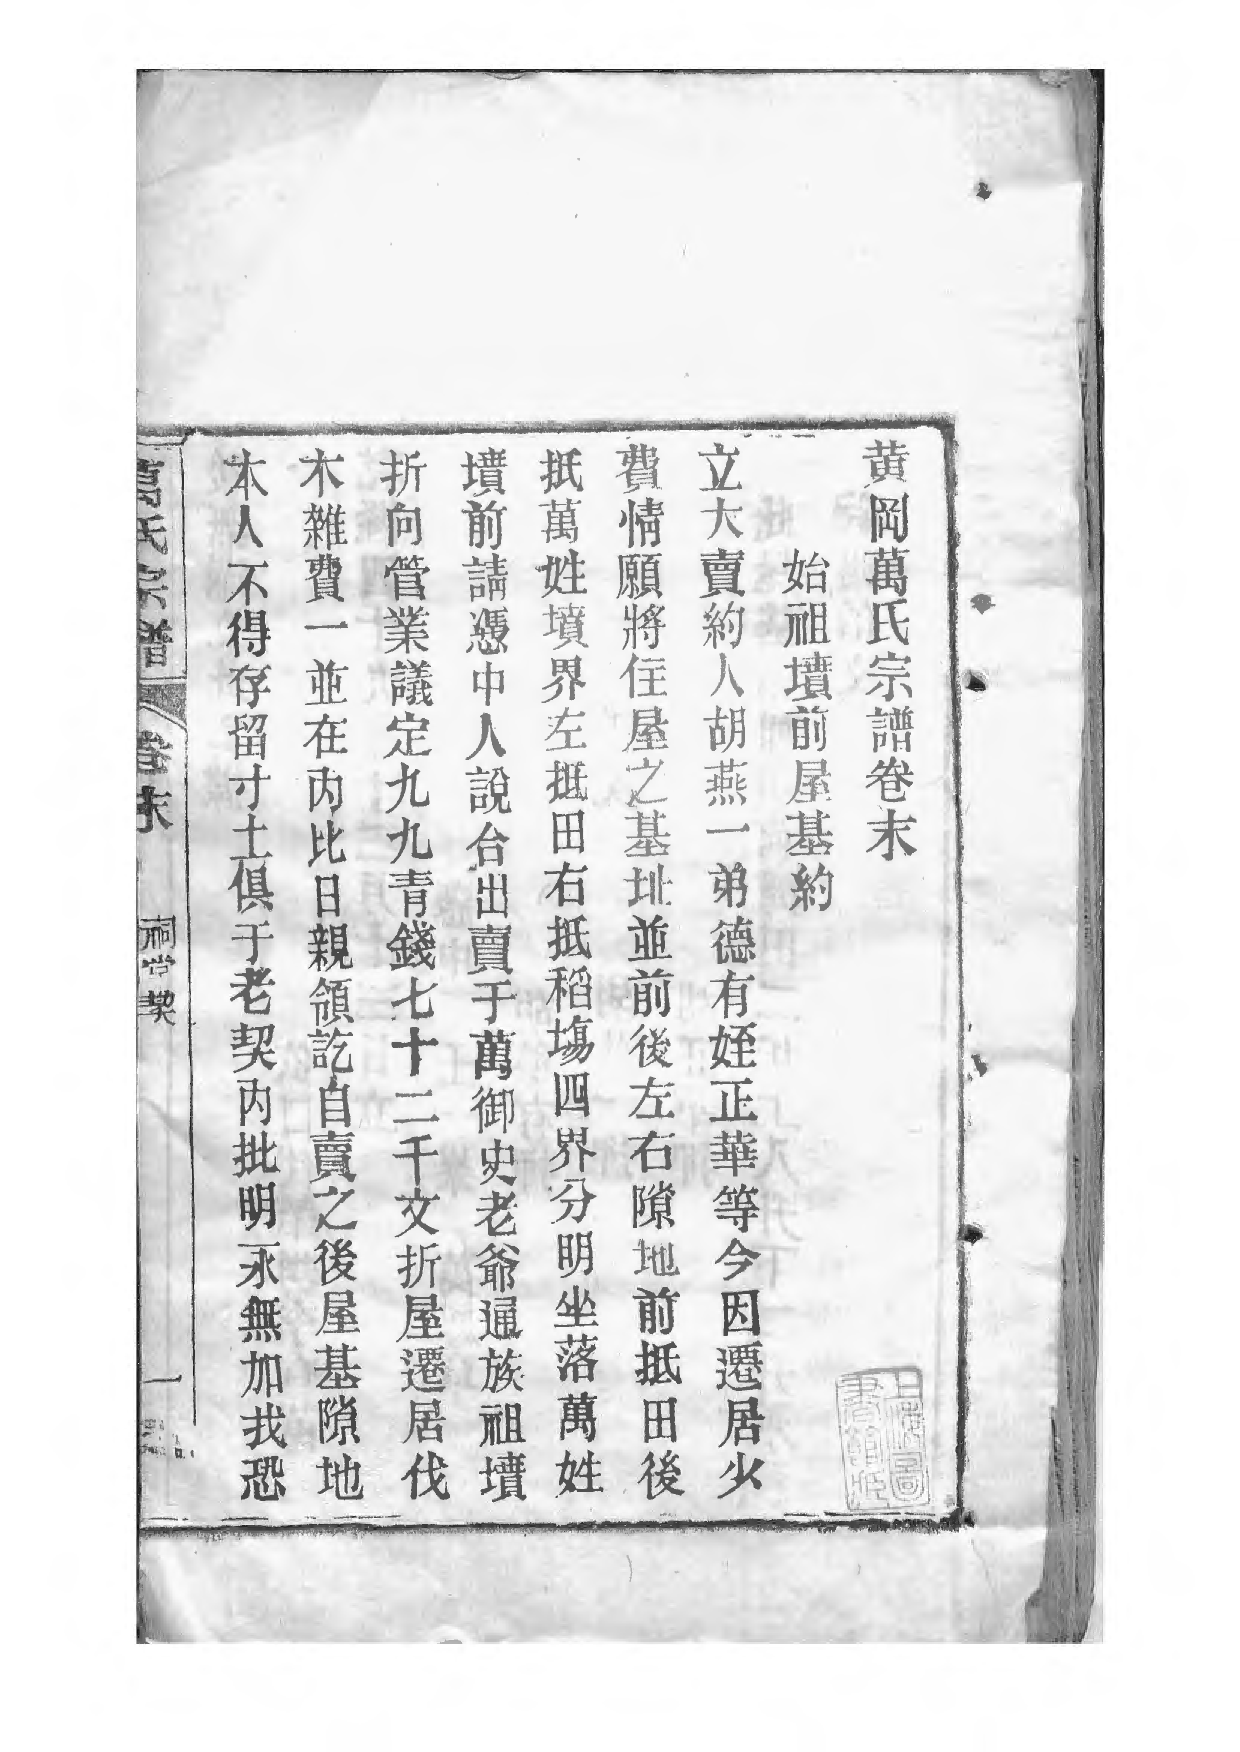 黄岡萬氏宗譜卷末
始祖墳前屋基約
立大賣約人胡燕一弟德有姪正華等今因遷居少
費情願將住屋之基址並前後左右隙地前抵田後
抵萬姓墳界左抵田右抵稻塲四界分明坐落萬姓
墳前請憑中人說合出賣于萬御史老爺通族祖墳
折向管業議定九九青錢七十二千文折屋遷居伐
木雜費一並在內比日親領訖自賣之後屋基隙地
本人不得存留寸土俱于老契內批明永無加找恐
萬氏宗譜
卷末
祠堂契
一
上海圖
書館藏